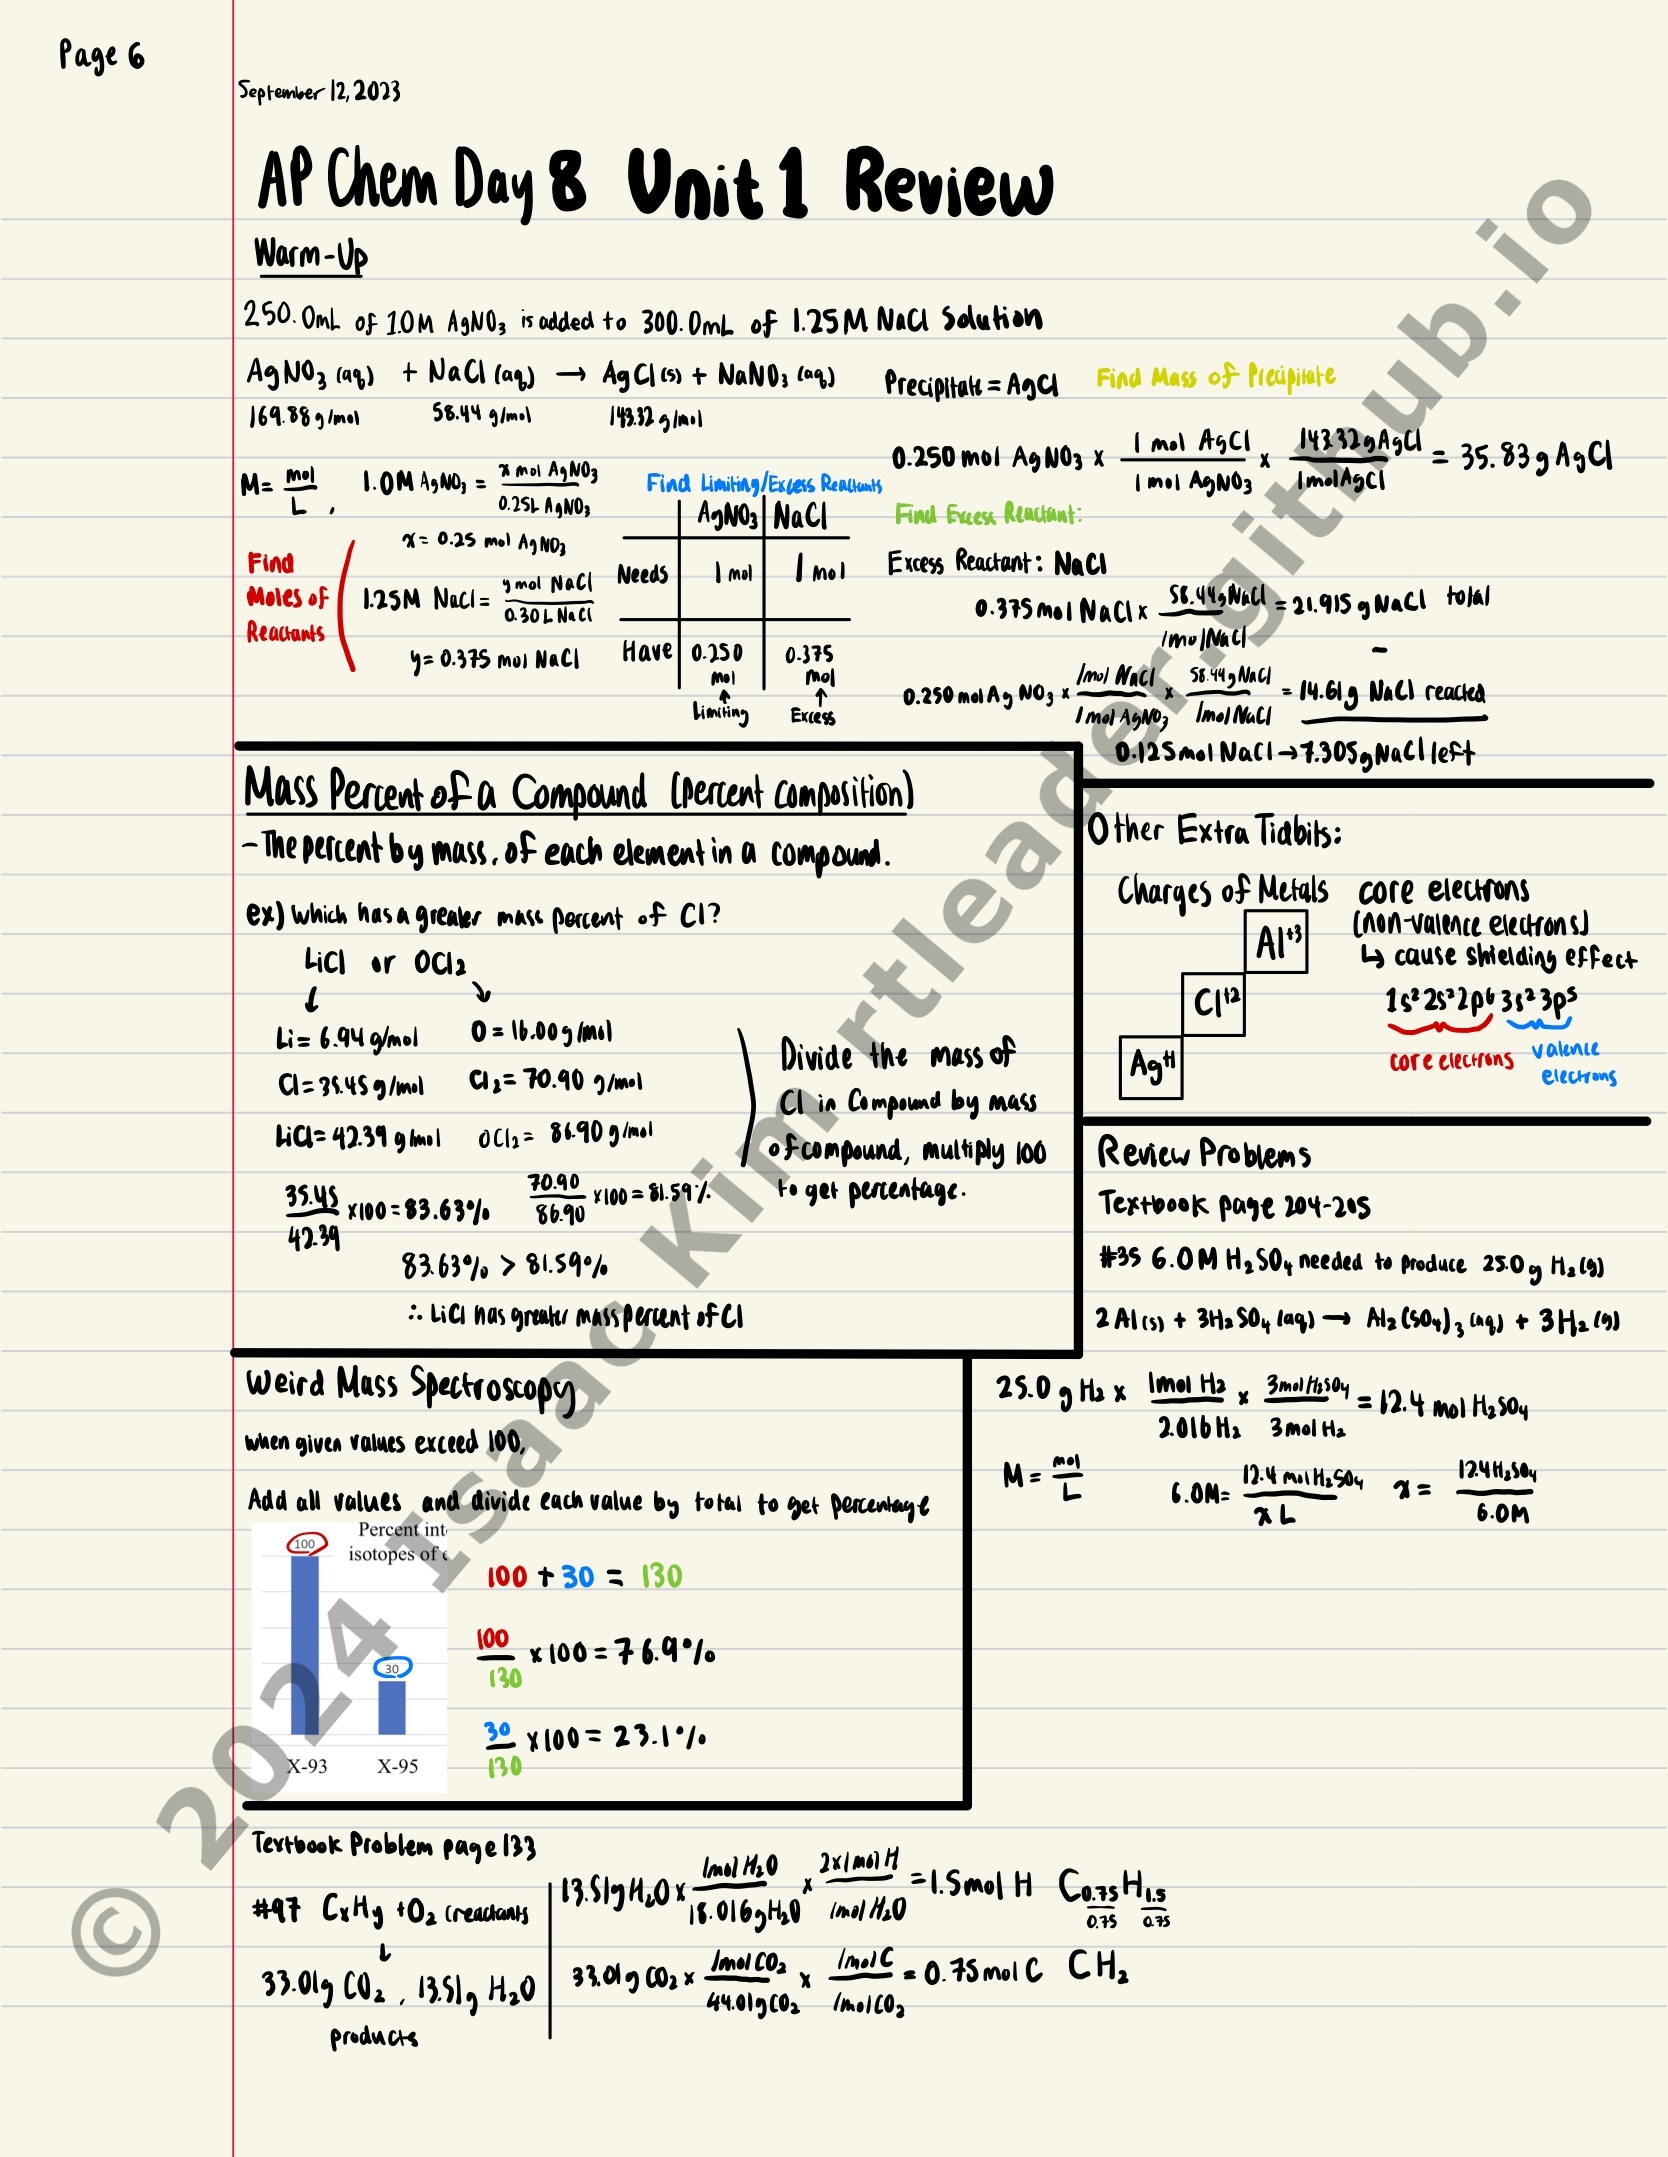 Page 6
September 12, 2023
AP Chem Day 8 Unit 1 Review
Warm-Up
250.0mL of 1.0M AgNO₃ is added to 300.0mL of 1.25M NaCl Solution
AgNO₃ (aq) + NaCl (aq) → AgCl (s) + NaNO₃ (aq)
169.88 g/mol 58.44 g/mol 143.32 g/mol
M = mol/L , 1.0M AgNO₃ = x mol AgNO₃ / 0.25L AgNO₃
x = 0.25 mol AgNO₃
Find
Moles of
Reactants
1.25M NaCl = y mol NaCl / 0.30L NaCl
y = 0.375 mol NaCl
Find Limiting/Excess Reactants
AgNO₃ NaCl
Needs 1 mol 1 mol
Have 0.250 mol 0.375 mol
↑ ↑
Limiting Excess
Precipitate = AgCl Find Mass of Precipitate
0.250 mol AgNO₃ x 1 mol AgCl / 1 mol AgNO₃ x 143.32 g AgCl / 1 mol AgCl = 35.83 g AgCl
Find Excess Reactant:
Excess Reactant: NaCl
0.375 mol NaCl x 58.44 g NaCl / 1 mol NaCl = 21.915 g NaCl total
-
0.250 mol AgNO₃ x 1 mol NaCl / 1 mol AgNO₃ x 58.44 g NaCl / 1 mol NaCl = 14.61 g NaCl reacted
0.125 mol NaCl → 7.305 g NaCl left
Mass Percent of a Compound (percent composition)
- The percent by mass, of each element in a compound.
ex) Which has a greater mass percent of Cl?
LiCl or OCl₂
↓ ↘
Li = 6.94 g/mol O = 16.00 g/mol
Cl = 35.45 g/mol Cl₂ = 70.90 g/mol
LiCl = 42.39 g/mol OCl₂ = 86.90 g/mol
35.45/42.39 x100 = 83.63% 70.90/86.90 x100 = 81.59%
83.63% > 81.59%
∴ LiCl has greater mass percent of Cl
Divide the mass of
Cl in Compound by mass
of compound, multiply 100
to get percentage.
Other Extra Tidbits:
Charges of Metals
Al⁺³
Cl⁺²
Ag⁺¹
core electrons
(non-valence electrons)
↳ cause shielding effect
1s² 2s² 2p⁶ 3s² 3p⁵
core electrons valence
electrons
Review Problems
Textbook page 204-205
#35 6.0M H₂SO₄ needed to produce 25.0 g H₂ (g)
2Al (s) + 3H₂SO₄ (aq) → Al₂(SO₄)₃ (aq) + 3H₂ (g)
25.0 g H₂ x 1 mol H₂ / 2.016 H₂ x 3 mol H₂SO₄ / 3 mol H₂ = 12.4 mol H₂SO₄
M = mol/L 6.0M = 12.4 mol H₂SO₄ / x L x = 12.4 H₂SO₄ / 6.0M
Weird Mass Spectroscopy
When given values exceed 100,
Add all values and divide each value by total to get percentage
Percent int
isotopes of e
100
30
X-93 X-95
100 + 30 = 130
100/130 x100 = 76.9%
30/130 x100 = 23.1%
Textbook Problem page 133
#97 CxHy + O₂ (reactants
↓
33.01g CO₂ , 13.51g H₂O
products
13.51g H₂O x 1 mol H₂O / 18.016 g H₂O x 2x1 mol H / 1 mol H₂O = 1.5 mol H C₀.₇₅H₁.₅
0.75 0.75
33.01 g CO₂ x 1 mol CO₂ / 44.01 g CO₂ x 1 mol C / 1 mol CO₂ = 0.75 mol C CH₂
© 2024 Isaac Kim rtleader.github.io